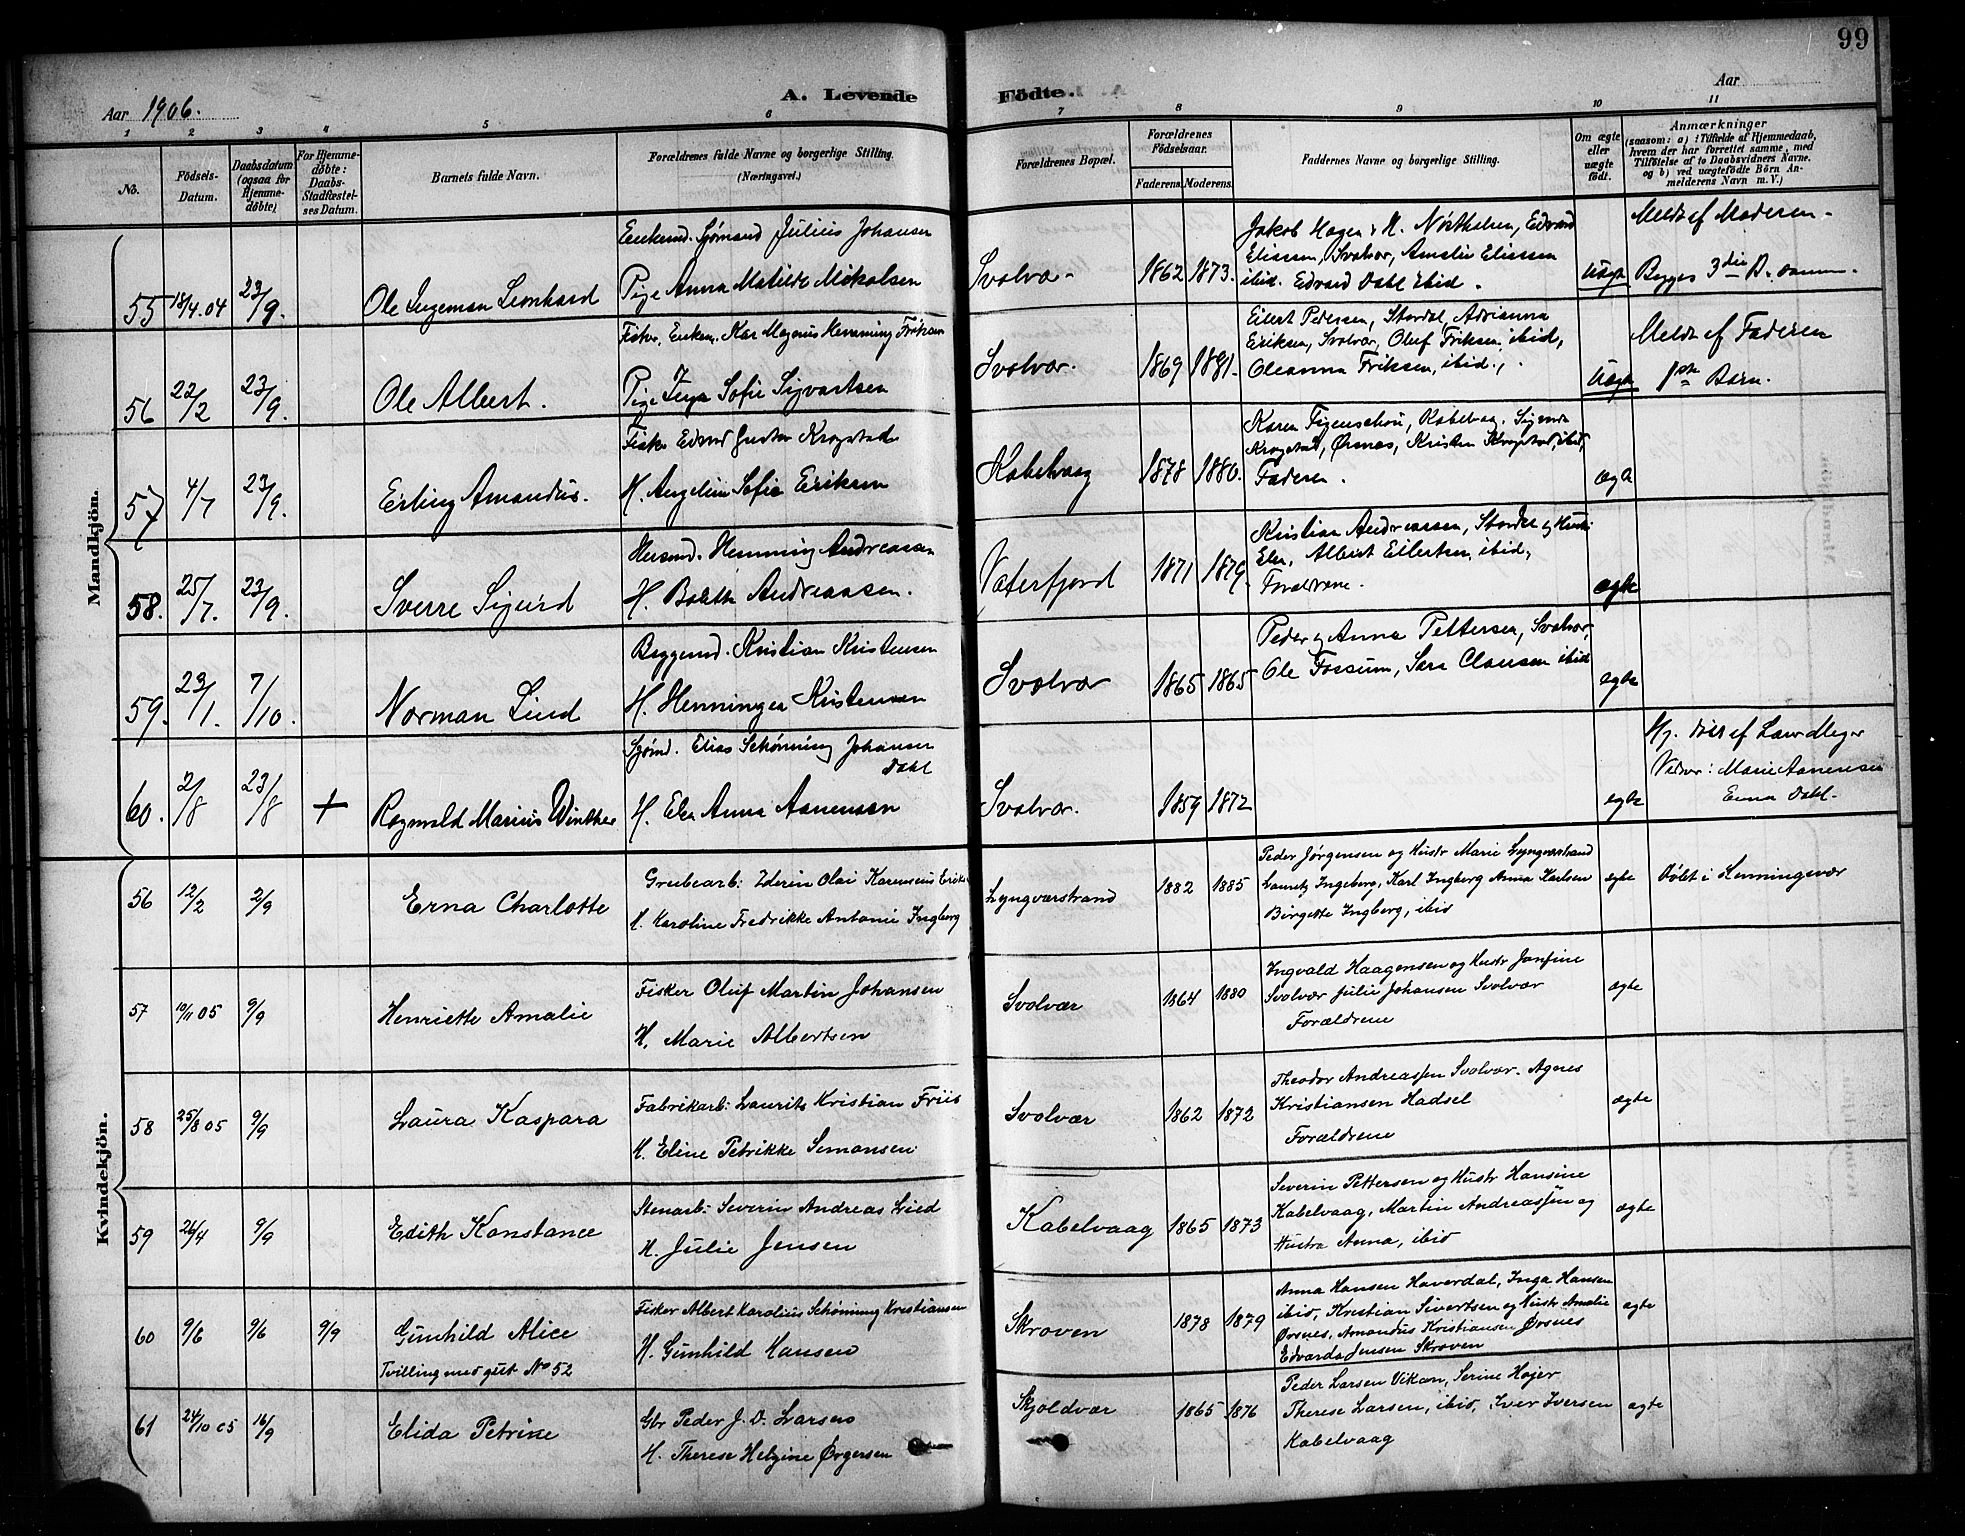 99
Aar 1906.
A. Levende Födte.
Aar
1 2 3 4 5 6 7 8 9 10 11
No.
Födsels-Datum.
Daabsdatum (ogsaa for Hjemme-döbte)
For Hjemme-döbte: Daabs-Stadfæstel-ses Datum.
Barnets fulde Navn.
Forældrenes fulde Navne og borgerlige Stilling.
(Næringsvei.)
Forældrenes Bopæl.
Forældrenes Födselsaar.
Faderens. Moderens.
Faddernes Navne og borgerlige Stilling.
Om ægte eller uægte födt.
Anmærkninger
(saasom: a) i Tilfælde af Hjemmedaab, hvem der har forrettet samme, med Tilföielse af to Daabsvidners Navne. og b) ved uægtefödte Börn An-melderens Navn m. V.)
Mandkjön.
55 18/4.04 23/9. Ole Ingeman Leonhard
Enkemd. Sjömand Julius Johansen
Pige Anna Matilde Mikalsen
Svolvær 1862 1873.
Jakob Hagen, M. Nörthelsen, Edvard
Eliassen, Svolvær, Amalie Eliassen
ibid. Edvard Dahl ibid.
Uægte
Meldt af Moderen.
Begges 3die B.
56 22/2 23/9. Ole Albert.
Pige Inga Sofie Sigvartsen
Svolvær. 1869 1881.
Eilert Pedersen, Stordal, Adrianna
Eriksen, Svolvær, Oluf Eriksen, ibid,
Oleanna Eriksen, ibid.,
Uægte
Meldt af Faderen
1ste Barn.
57 4/7 23/9. Erling Amandus.
Fisker Edvard Gustav Krogstad
H. Angelin Sofie Eriksen
Kabelvaag 1878 1880.
Karen Figenschou, Kabelvag. Signe
Krogstad, Ørsnes, Kristen Krogstad, ibid,
Faderen.
ægte
58. 25/7. 23/9. Sverre Sigurd
Husmd. Hemming Andreassen
H. Bolette Andreassen.
Vaterfjord 1871 1879.
Kristian Andreassen, Stordal og Hustr.
Elen, Albert Eilertsen, ibid,
Forældrene.
ægte
59. 23/1. 7/10. Norman Lind
Byggmd. Kristian Kristensen
H. Henninga Kristensen
Svolvær 1865 1865
Peder og Anna Pettersen, Svolvær,
Ole Fossum, Sara Clausen ibid
ægte
60. 2/8 23/8 + Ragnvald Marius Winther
Sjömd. Elias Schönning Johansen
Dahl
H. Elen Anna Aanensen
Svolvær. 1859 1872
ægte
Hj. döbt af Lærdleger
Vidner: Marie Aanensen
Erna Dahl.
Kvindekjön.
56 12/2 2/9 Erna Charlotte
Grubearb: Ederin Olai Karensius Eriks
H. Karoline Fredrikke Antonie Ingberg
Lyngværstrand 1882 1885
Peder Jörgensen og Hustr Marie Lyngværstrand
Lauritz Ingeberg, Karl Ingberg Anna Karlsen
Birgitte Ingberg, ibid
ægte Döbt i Henningsvær
57 10/11 05 9/9 Henriette Amalie
Fisker Oluf Martin Johansen
H. Marie Albertsen
Svolvær 1864 1880
Ingvald Haagensen og Hustr Jonsine
Svolvær Julie Johansen Svolvær
Forældrene
ægte
58 25/8 05 9/9 Laura Kaspara
Fabrikarb: Laurits Kristian Friis
H. Eline Petrikke Simonsen
Svolvær 1862 1872
Theodor Andreassen Svolvær. Agnes
Kristiansen Hadsel
Forældrene
ægte
59 26/4 9/9 Edith Konstance
Stenarb: Severin Andreas Lied
H. Julie Jensen
Kabelvaag 1865 1873
Severin Pettersen og Hustr Hansine
Kabelvaag, Martin Andreassen og
Hustru Anna, ibid
ægte
60 9/6 9/6 9/9 Gunhild Alice
Tvilling med gut No 52
Fisker Albert Karolius Schönning Kristiansen
H. Gunhild Hansen
Skroven 1878 1879
Anna Hansen Haverdal, Inga Hansen
ibid, Kristian Sivertsen og Hustr Amalie
Örsnes, Amandus Kristiansen Örsnes
Edvarda Jensen Skroven
ægte
61 24/10 05 16/9 Elida Petrine
Gbr Peder J. D. Larsen
H. Therese Helgine Örgersen
Skjoldvær 1865 1876
Peder Larsen Vikan, Serine Hojer
Therese Larsen, ibid, Iver Iversen
Kabelvaag
ægte